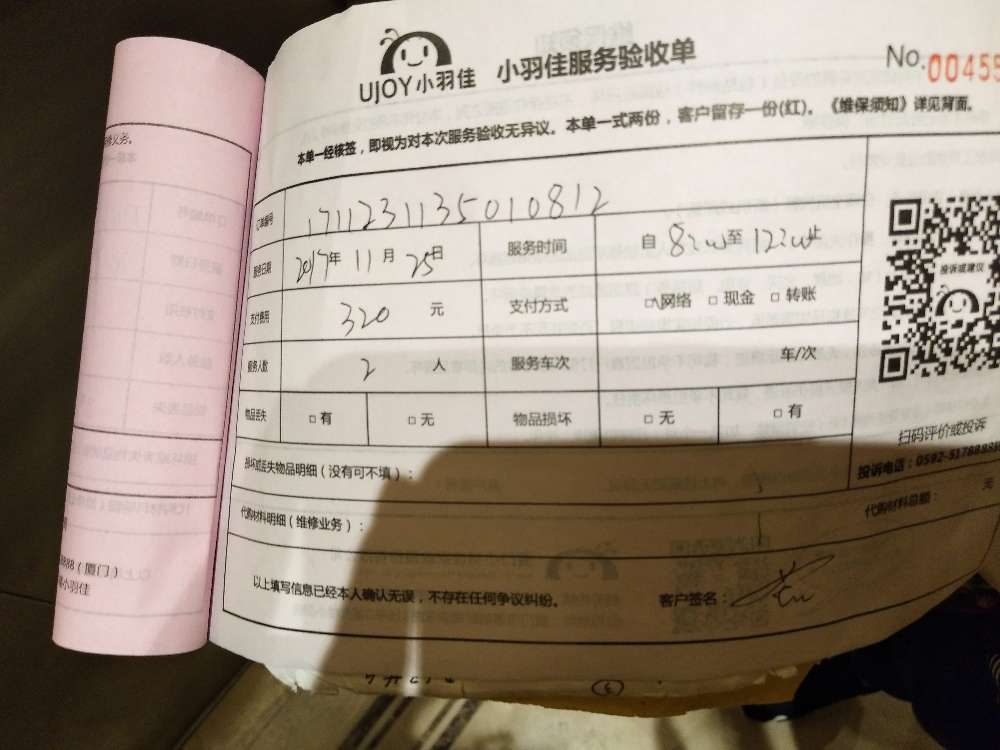 UJOY小羽佳 小羽佳服务验收单 No.00455
本单一经核签，即视为对本次服务验收无异议。本单一式两份，客户留存一份(红)。《维保须知》详见背面。
订单编号 1711231135010812
服务日期 2017年 11月 25日 服务时间 自 8:00至 12:00止
支付费用 320 元 支付方式 网络 □ 现金 □ 转账
服务人数 2 人 服务车次 车/次
物品丢失 □ 有 □ 无 物品损坏 □ 无 □ 有
损坏或丢失物品明细（没有可不填）：
代购材料明细（维修业务）： 代购材料总额： 元
以上填写信息已经本人确认无误，不存在任何争议纠纷。 客户签名：
投诉或建议
扫码评价或投诉
投诉电话：0592-5178888
修义务。
8888（厦门）
小羽佳